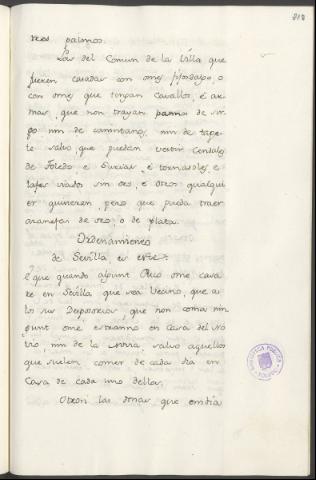 tres palmos.
Las del Comun de la Villa que
fueren casadas con omes
con omes que tengan Cavallos, é ar-
mas, que non trayan
nin de nin de tape-
te salvo que puedan vestir Cendales
de Toledo é é tornasoles, é
tafes viados sin oro, é otros qualqui
er quisieren, pero que pueda traer
oranefas de oro, o de plata.
Ordenamiento
de Sevilla es este:
E que quando algunt Ome casa
re en Sevilla que sea Vecino, que a
los sus Desposorios que non coma nin
gunt ome estranno en Casa del No
vio, nin de la Novia, salvo aquellos
que suelen comer de cada dia en
Casa de cada uno dellos.
Otrosi las donas que embia